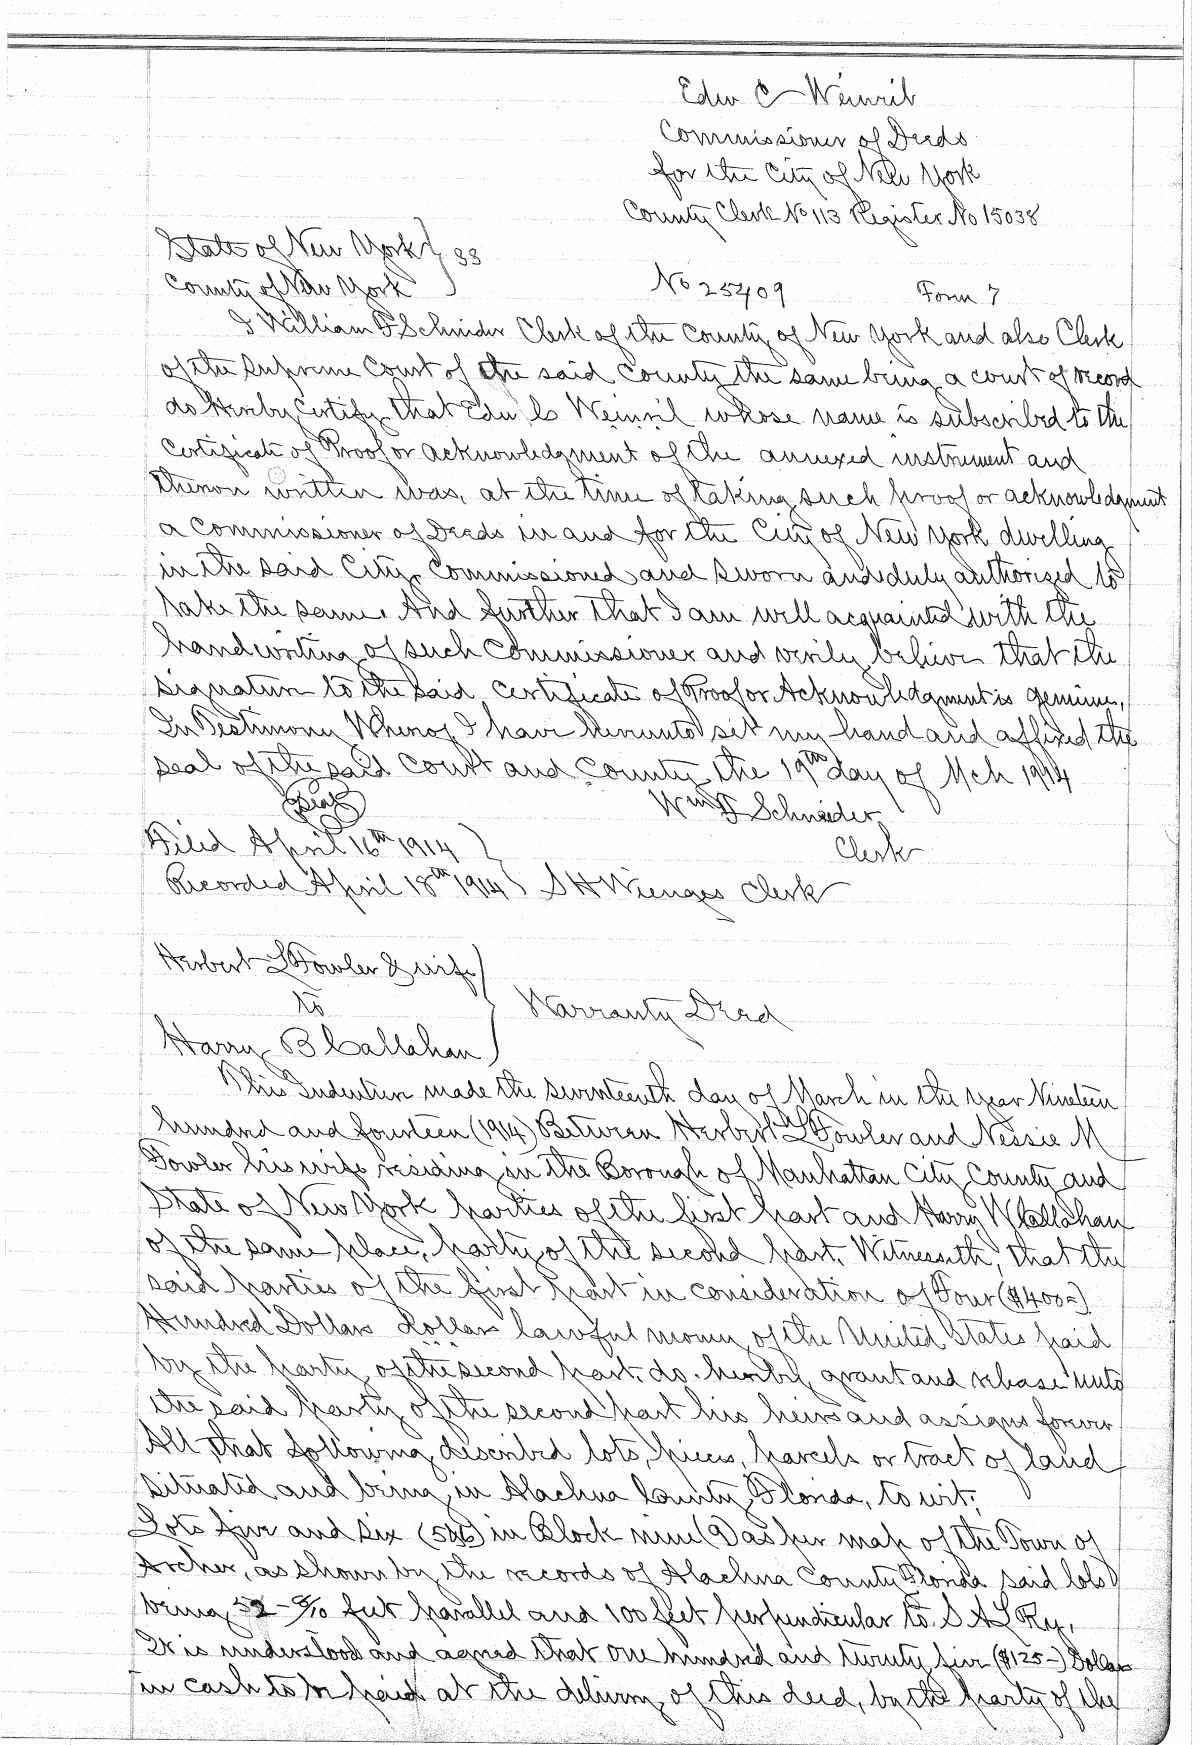 Edw C Weinrib
Commissioner of Deeds
for the City of New York
County Clerk No 113 Register No 15038
State of New York } ss
County of New York }
No 25409 Form 7
I William F Schnider Clerk of the County of New York and also Clerk
of the Supreme Court of the said County the same being a court of record
do Hereby Certify that Edw C Weinril whose name is subscribed to the
Certificate of Proof or acknowledgment of the annexed instrument and
thereon written was, at the time of taking such proof or acknowledgment
a Commissioner of Deeds in and for the City of New York dwelling
in the said City, Commissioned and sworn and duly authorized to
take the same. And further that I am well acquainted with the
handwriting of such Commissioner and verily believe that the
signature to the said certificate of Proof or Acknowledgment is genuine,
In Testimony Whereof I have hereunto set my hand and affixed the
seal of the said Court and County the 19th day of Mch 1914
(Seal) Wm F Schneider
Filed April 16th 1914 } Clerk
Recorded April 18th 1914 } S H Wienges Clerk
Herbert L Fowler & wife
to } Warranty Deed
Harry B Callahan
This Indenture made the seventeenth day of March in the year Nineteen
hundred and fourteen (1914) Between Herbert L Fowler and Nessie M
Fowler his wife residing in the Borough of Manhattan City County and
State of New York parties of the first part and Harry W Callahan
of the same place, party of the second part, Witnesseth, that the
said parties of the first part in consideration of Four ($400=)
Hundred Dollars dollars lawful money of the United States paid
by the party of the second part, do hereby grant and release unto
the said party of the second part his heirs and assigns forever
All that following described lots, pieces, parcels or tract of land
situated and being in Alachua County, Florida, to wit;
Lots five and six (5&6) in Block nine (9) as per map of the Town of
Archer, as shown by the records of Alachua County Florida said lots
being 52-8/10 feet parallel and 100 feet perpendicular to S A L Ry,
It is understood and agreed that one hundred and twenty five ($125-) Dollars
in cash to be paid at the delivery of this deed, by the party of the